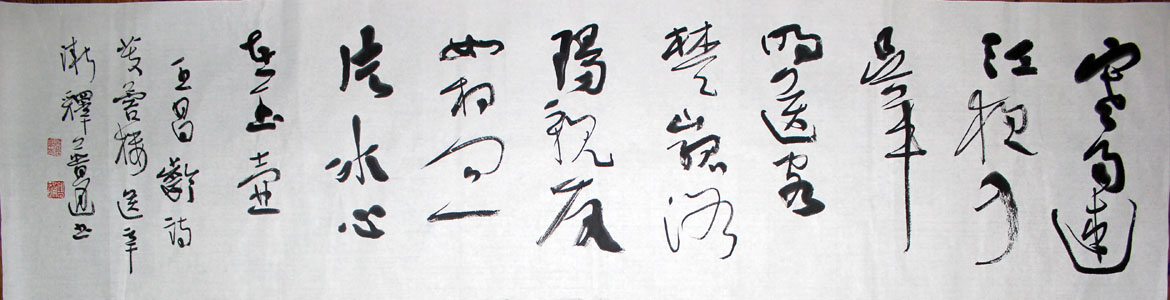 寒雨連
江夜入
吳平
明送客
楚山孤洛
陽親友
如相問一
片冰心
在玉壺
王昌齡詩
芙蓉樓送辛
漸 釋